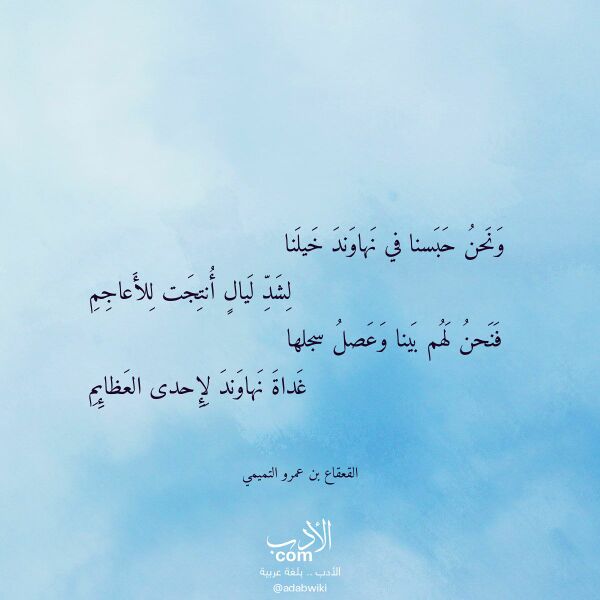 وَنَحنُ حَبَسنا في نَهاوَندَ خَيلَنا
لِشَدِّ لَيالٍ أُنتِجَت لِلأَعاجِمِ
فَنَحنُ لَهُم بَينا وَعَصلُ سجلها
غَداةَ نَهاوَندَ لِإِحدى العَظائِمِ
القعقاع بن عمرو التميمي
الأدب
com
الأدب .. بلغة عربية
@adabwiki